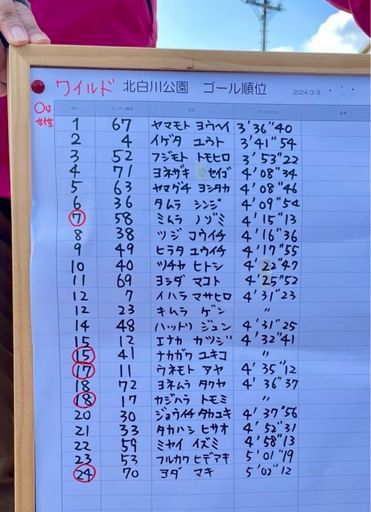 ワイルド 北白川公園 ゴール順位 2024/3/3
○は女性
1 67 ヤマモト ヨウヘイ 3'36"40
2 4 イゲタ ユウト 3'41"54
3 52 フジモト トモヒロ 3'53"22
4 71 ヨネザキ セイゴ 4'08"34
5 63 ヤマグチ ヨシタカ 4'08"46
6 36 タムラ シンジ 4'09"54
7 58 ミムラ ノゾミ 4'15"13
8 38 ツジ コウイチ 4'16"36
9 49 ヒラタ ユウイチ 4'17"55
10 40 ツチヤ ヒトシ 4'22"47
11 69 ヨシダ マコト 4'25"52
12 7 イハラ マサヒロ 4'31"23
12 23 キムラ ゲン 〃
14 48 ハットリ ジュン 4'31"25
15 12 エナカ カツジ 4'32"41
15 41 ナカガワ ユキコ 〃
17 11 ウネモト アヤ 4'35"12
18 72 ヨネムラ タクヤ 4'36"37
18 17 カジハラ トモミ 〃
20 30 ジョウイチ タカユキ 4'37"56
21 33 タカハシ ヒサオ 4'52"31
22 59 ミヤイ イズミ 4'58"13
23 53 フルカワ ヒデアキ 5'01"19
24 70 ヨダ マキ 5'02"12